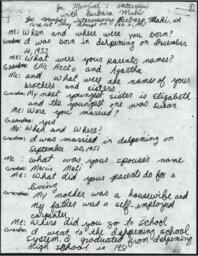 Joe Mongiat's Interview
with Barbara Maki
Joe Mongiat interviewing Barbara Maki, my
Me: When and where were you born?
Grandma: I was born in Ishpeming on December
16, 1933
Me: What were your parents names?
Grandma: and Agatha
Me: and what were the names of your
brothers and sisters
Grandma: My next youngest sister is Elizabeth
and the youngest one was Susan.
Me: Were you married?
Grandma: yes
Me: When and Where?
Grandma: I was married in Ishpeming on
September 1951
Me: What was your spouses name
Grandma: Maki
Me: What did your parents do for a
living
Grandma: My mother was a housewife and
my father was a self-employed
carpenter.
Me: Where did you go to school
Grandma: I went to the Ishpeming school
system. I graduated from Ishpeming
High School in 1951